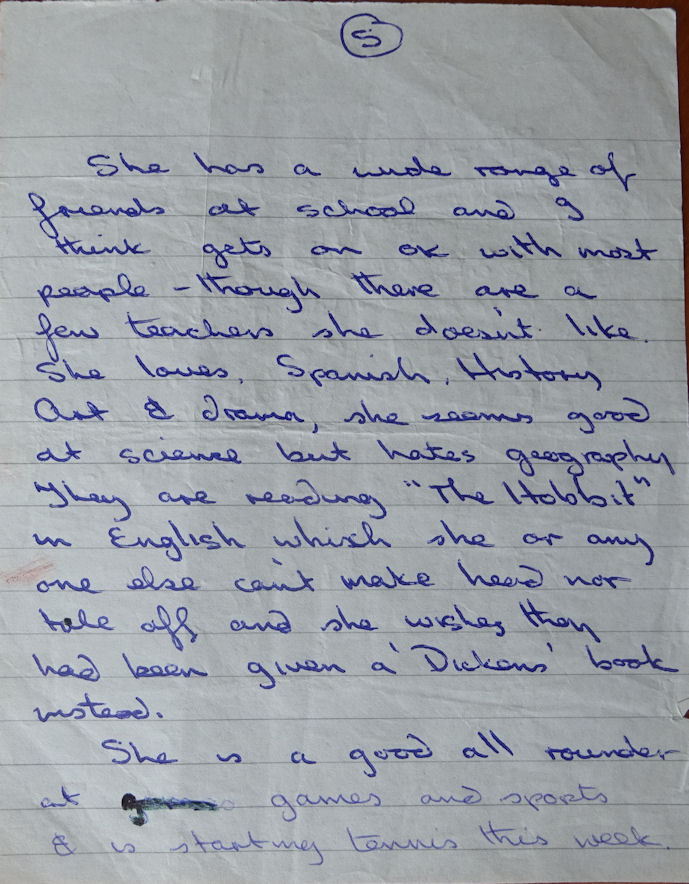 5
She has a wide range of
friends at school and I
think gets on ok with most
people - though there are a
few teachers she doesn't like.
She loves, Spanish, History
Art & drama, she seems good
at science but hates geography
They are reading "The Hobbit"
in English which she or any
one else can't make head nor
tale off and she wishes they
had been given a 'Dickens' book
instead.
She is a good all rounder
at games and sports
& is starting tennis this week.